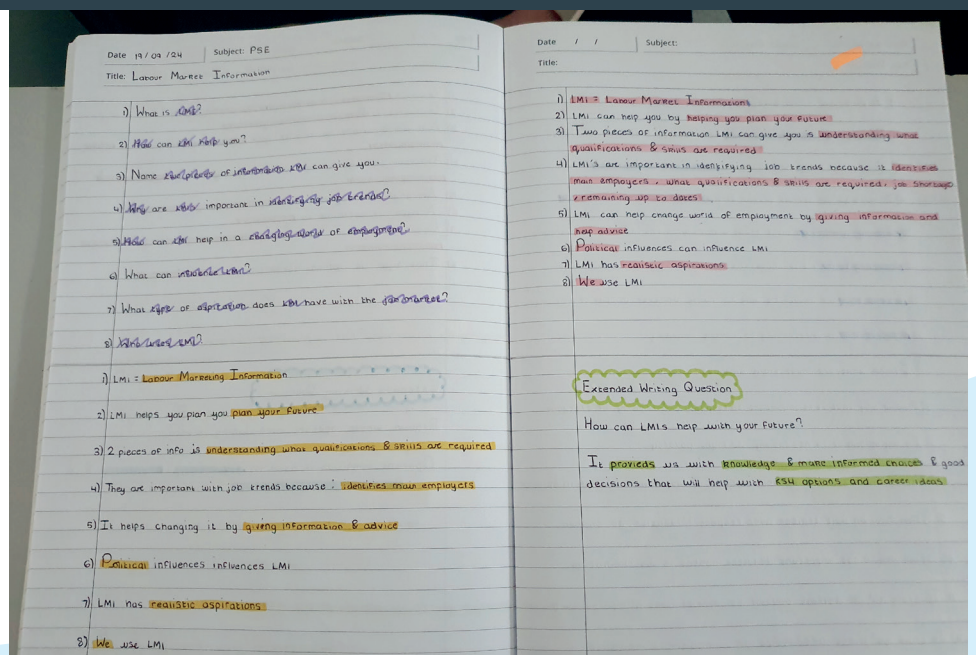 Date 19/09/24 Subject: PSE
Title: Labour Market Information
1) What is LMI?
2) How can LMI help you?
3) Name two pieces of information LMI can give you.
4) Why are LMIs important in identifying job trends?
5) How can LMI help in a changing world of employment?
6) What can influence LMI?
7) What type of aspiration does LMI have with the job market?
8) Who uses LMI?
1) LMI = Labour Marketing Information
2) LMI helps you plan you plan your future
3) 2 pieces of info is understanding what qualifications & skills are required
4) They are important with job trends because: identifies main employers
5) It helps changing it by giving information & advice
6) Political influences influences LMI
7) LMI has realistic aspirations
8) We use LMI
Date / / Subject:
Title:
1) LMI = Labour Market Information
2) LMI can help you by helping you plan your future
3) Two pieces of information LMI can give you is understanding what
qualifications & skills are required
4) LMI's are important in identifying job trends because it identifies
main employers, what qualifications & skills are required, job shortage
& remaining up to dates
5) LMI can help change world of employment by giving information and
help advice
6) Political influences can influence LMI
7) LMI has realistic aspirations
8) We use LMI
Extended Writing Question
How can LMIs help with your future?
It provieds us with knowledge & make informed choices & good
decisions that will help with KS4 options and career ideas